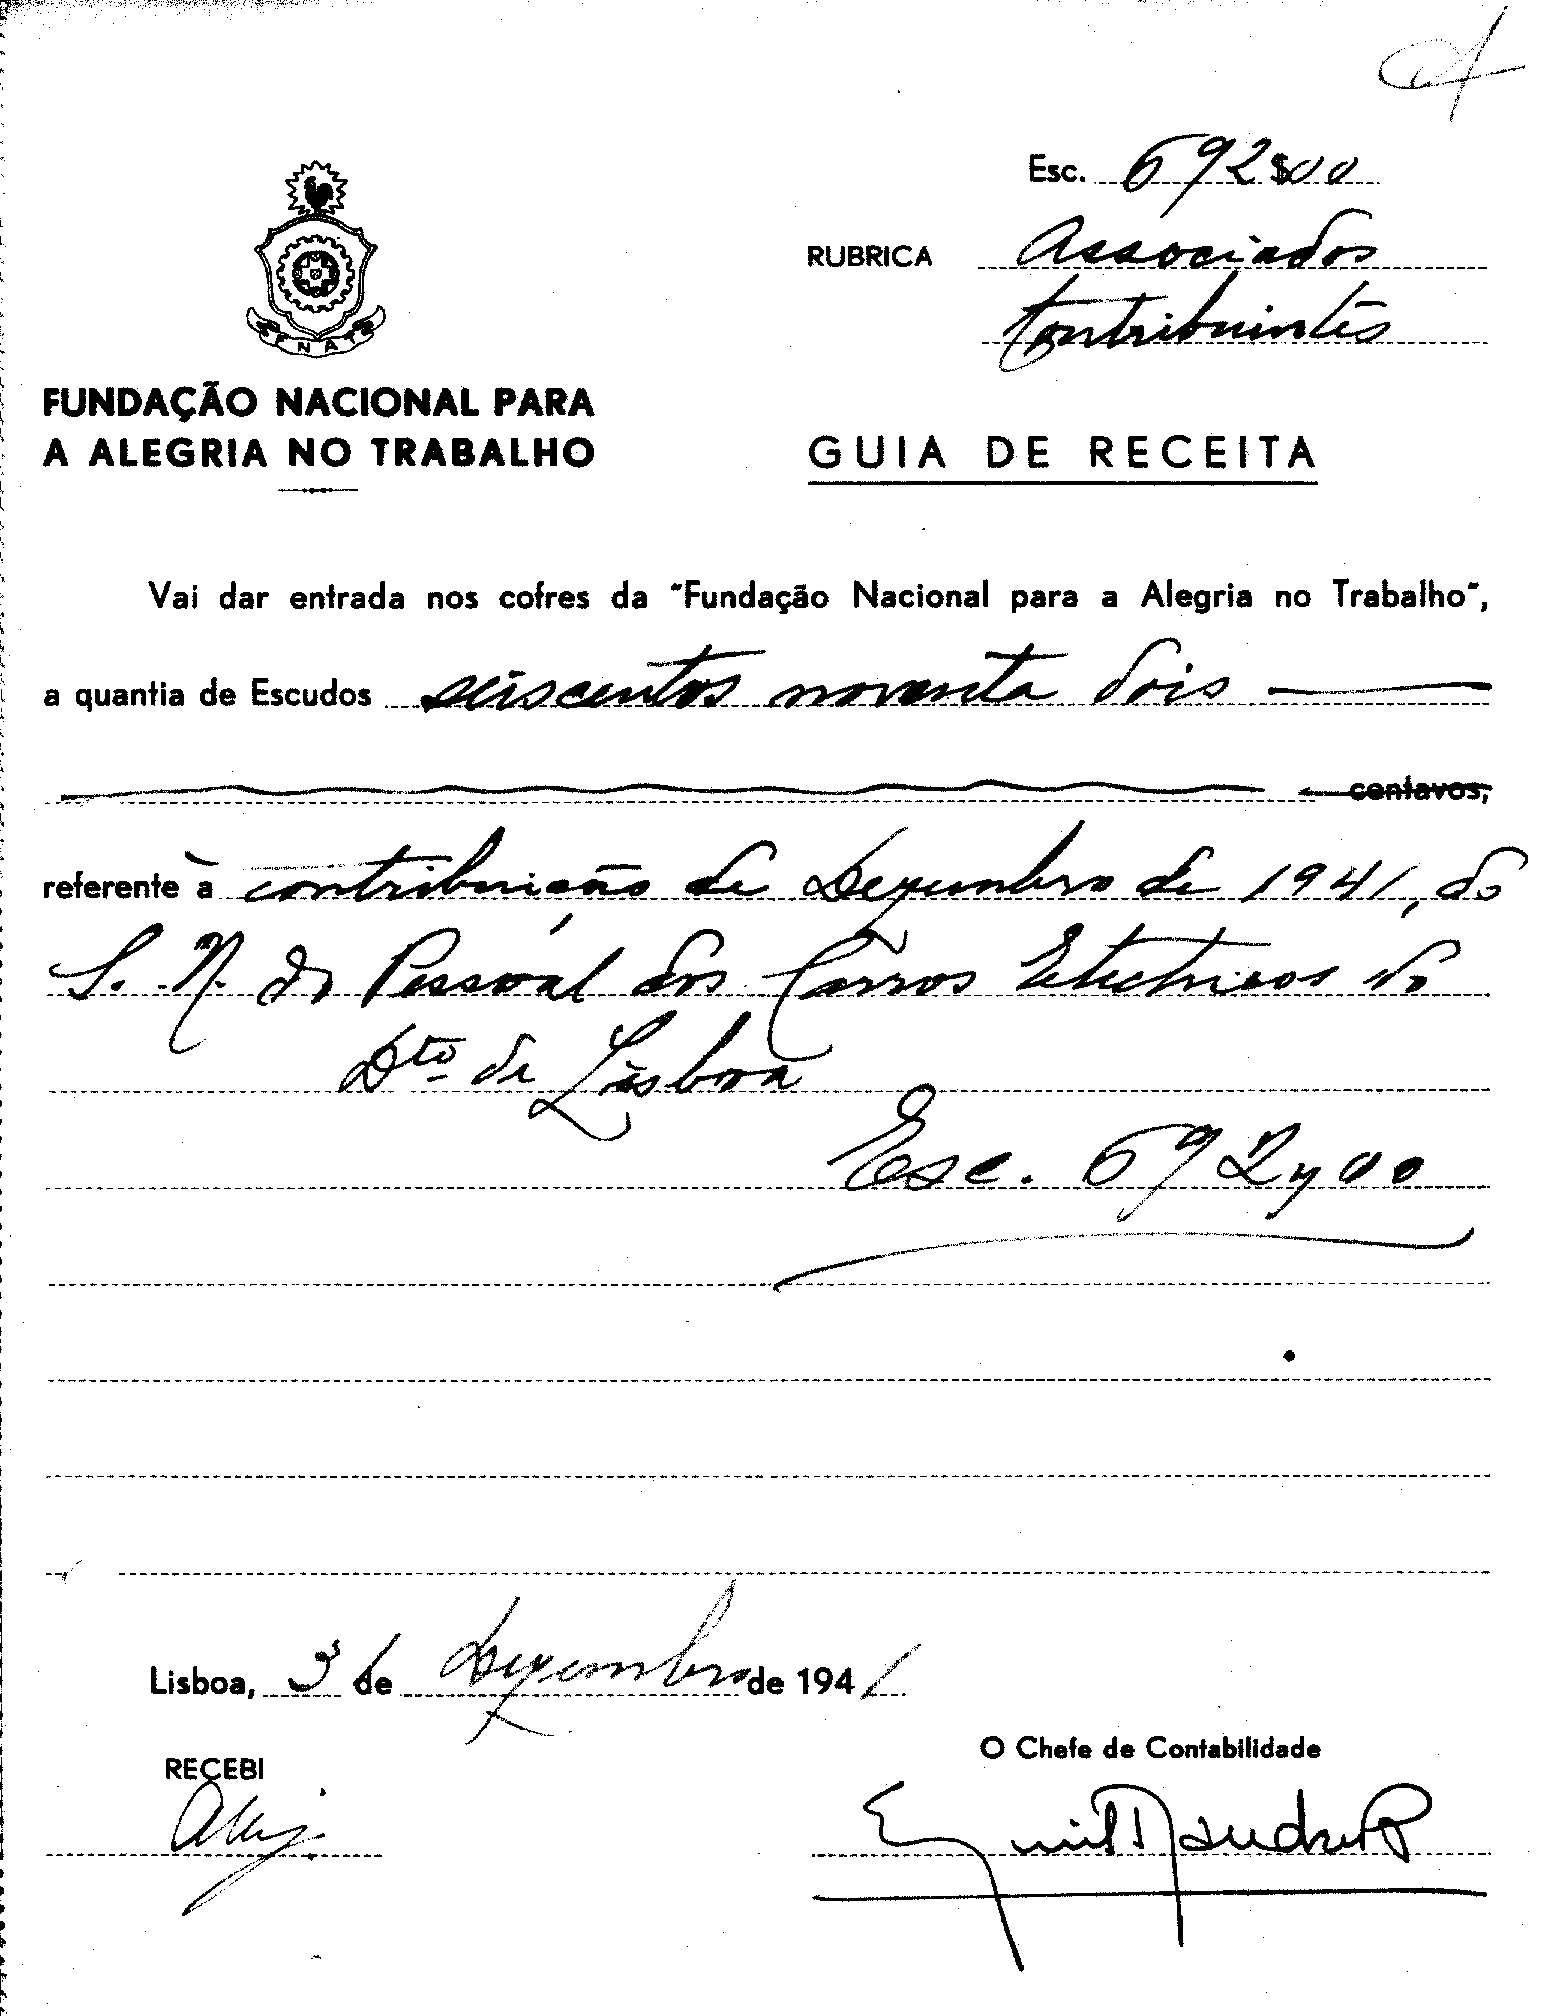 Esc. 692$00
RUBRICA Associados
Contribuintes
FENAT
FUNDAÇÃO NACIONAL PARA
A ALEGRIA NO TRABALHO
GUIA DE RECEITA
Vai dar entrada nos cofres da "Fundação Nacional para a Alegria no Trabalho",
a quantia de Escudos seiscentos noventa dois
centavos,
referente à contribuição de Dezembro de 1941, do
S. N. do Pessoal dos Carros Electricos do
Dto de Lisboa
Esc. 692$00
Lisboa, 3 de Dezembro de 1941
O Chefe de Contabilidade
RECEBI